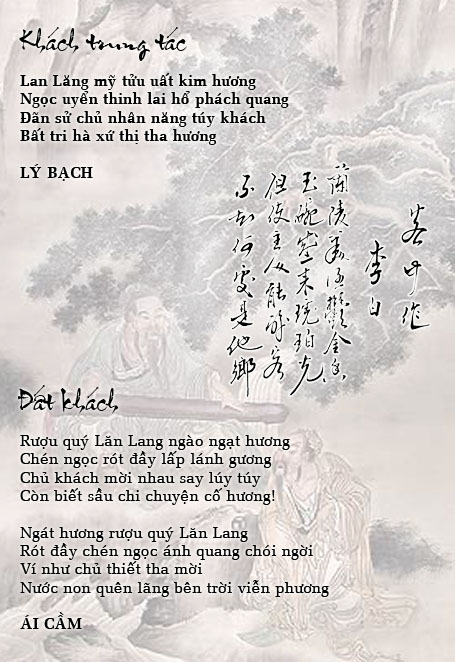 Khách trung tác
Lan Lăng mỹ tửu uất kim hương
Ngọc uyển thinh lai hổ phách quang
Đãn sử chủ nhân năng túy khách
Bất tri hà xứ thị tha hương
LÝ BẠCH
客中作
李白
蘭陵美酒鬱金香
玉碗盛來琥珀光
但使主人能醉客
不知何處是他鄉
Đất khách
Rượu quý Lăn Lang ngào ngạt hương
Chén ngọc rót đầy lấp lánh gương
Chủ khách mời nhau say lúy túy
Còn biết sầu chi chuyện cố hương!
Ngát hương rượu quý Lăn Lang
Rót đầy chén ngọc ánh quang chói ngời
Ví như chủ thiết tha mời
Nước non quên lãng bên trời viễn phương
ÁI CẦM